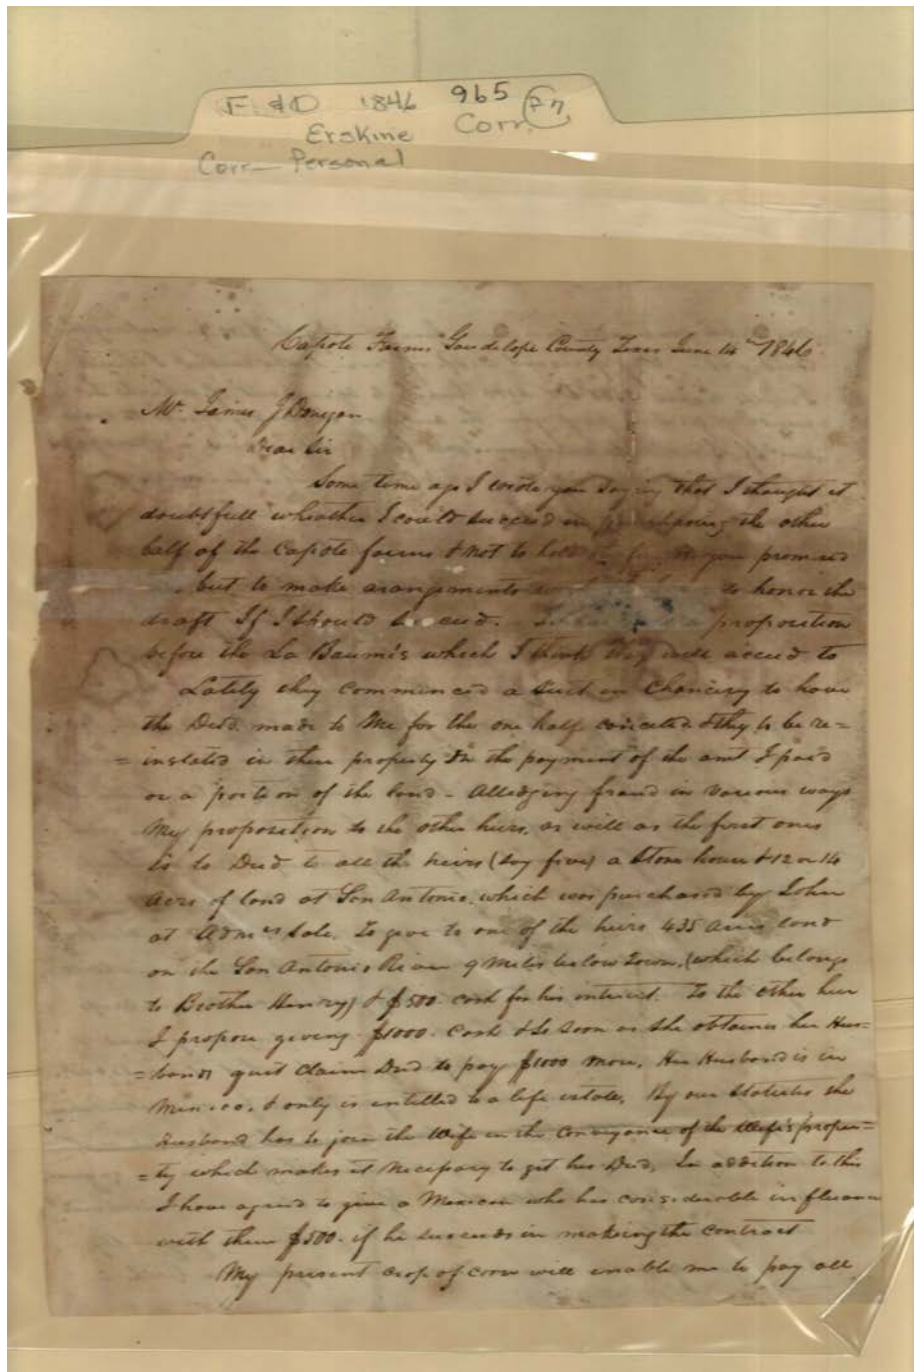 F & D 1846 965 P7
Erskine Corr.
Corr— Personal
Capote Farms Gaudelope County Texas June 14th 1846
Mr. James J Donegan
Dear Sir
Some time ago I wrote you saying that I thought it
doubtfull wheather I could succeed in purchasing the other
half of the Capote farms & not to you promised
but to make arangements to honor the
draft If I should succeed. proposition
before the La Baumes which I think they will acceed to
Lately they commenced a Suit in Chancery to have
the Deed made to Me for the one half & they to be re=
=instated in their property On the payment of the amt I paid
or a portion of the land - Alledging fraud in Various ways
My proposition to the other heirs, as well as the first ones
is to Deed to all the heirs (say five) a Stone house & 12 or 14
Acres of land at San Antonio, which was purchased by John
at Admrs Sale. To give to one of the heirs 435 acres land
on the San Antonio River 9 Miles below Town, (which belongs
to Brother Henry) & $500. cash for his interest. To the other heir
I propose giving $1000. Cash & So Soon as She obtaines her Hus=
=bands quit Claim Deed to pay $1000 more. Her Husband is in
Mexico, & only is entitled to a life estate. By our Statutes the
Husband has to join the Wife in the Conveyance of the Wife's proper=
=ty which makes it Necessary to get his Deed. In addition to this
I have agreed to give a Mexican who has considerable influance
with them $500. if he succeeds in making the Contract
My present crop of corn will enable me to pay all